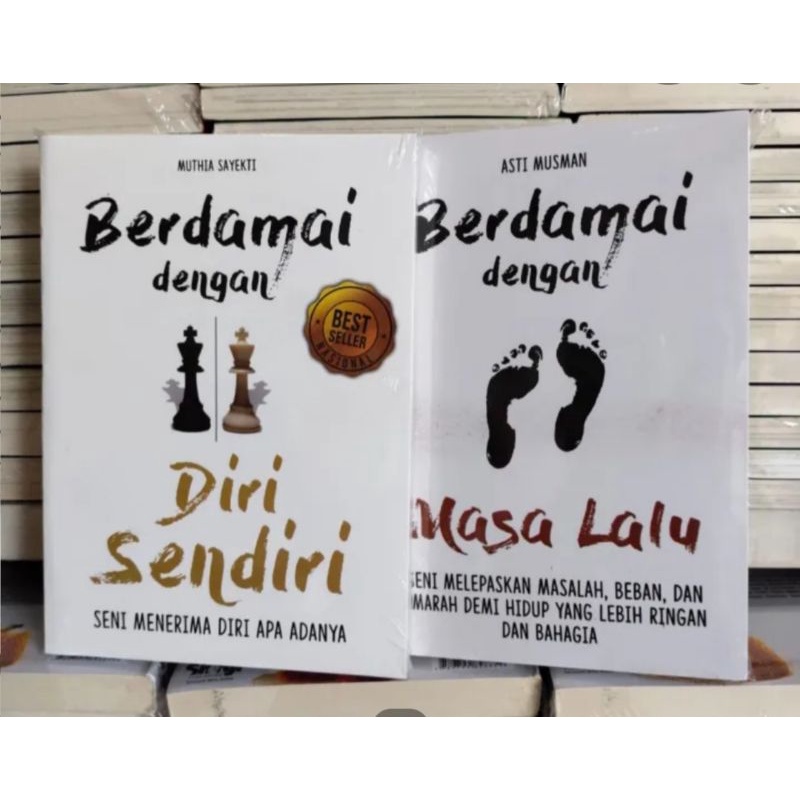 MUTHIA SAYEKTI
Berdamai
dengan
BEST
SELLER
NASIONAL
Diri
Sendiri
SENI MENERIMA DIRI APA ADANYA
ASTI MUSMAN
Berdamai
dengan
Masa Lalu
SENI MELEPASKAN MASALAH, BEBAN, DAN
AMARAH DEMI HIDUP YANG LEBIH RINGAN
DAN BAHAGIA